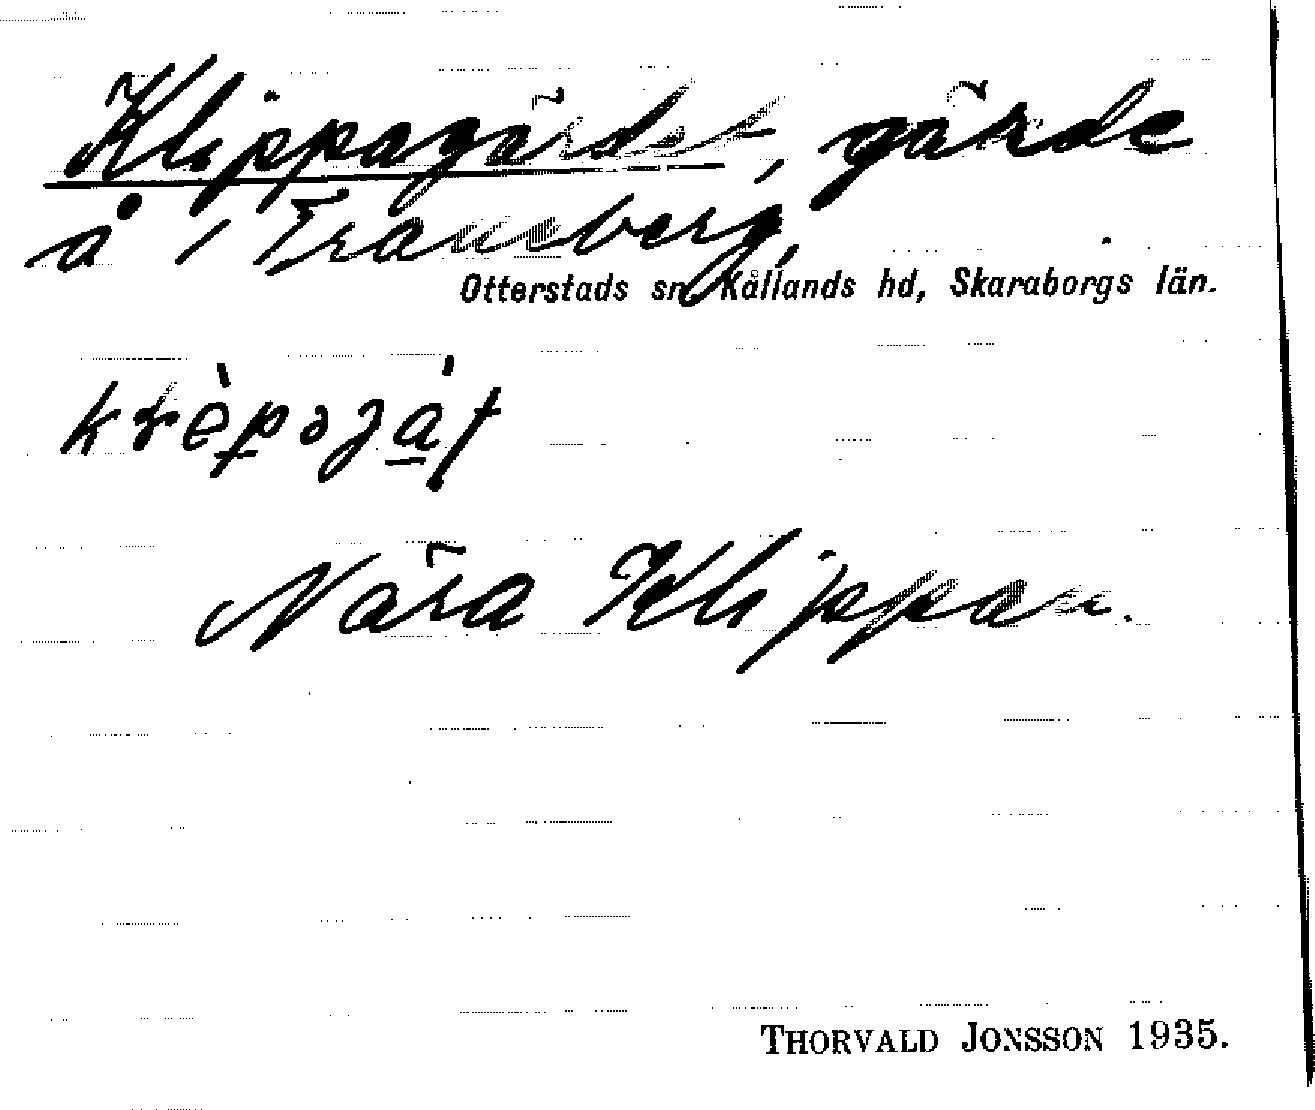 Klippagärdet, gärde
å 1 Traneberg,
Otterstads sn, Kållands hd, Skaraborgs län.
Nära Klippan.
THORVALD JONSSON 1935.